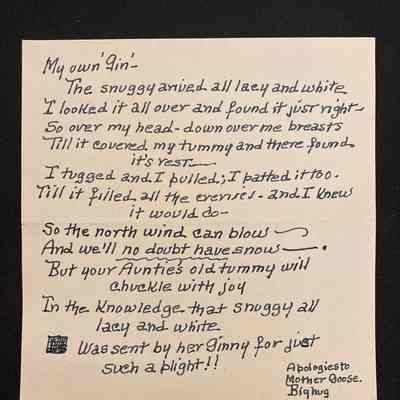 My own 'Gin'-
The snuggy arived all lacy and white
I looked it all over and found it just right-
So over my head - down over me breasts
Till it covered my tummy and there found
it's rest
I tugged and I pulled; I patted it too-
Till it filled all the crevises - and I knew
it would do-
So the north wind can blow
And we'll no doubt have snow.
But your Auntie's old tummy will
chuckle with joy
In the Knowledge that snuggy all
lacy and white
Was sent by her Ginny for just
such a plight!!
Apologies to
Mother Goose.
Big hug